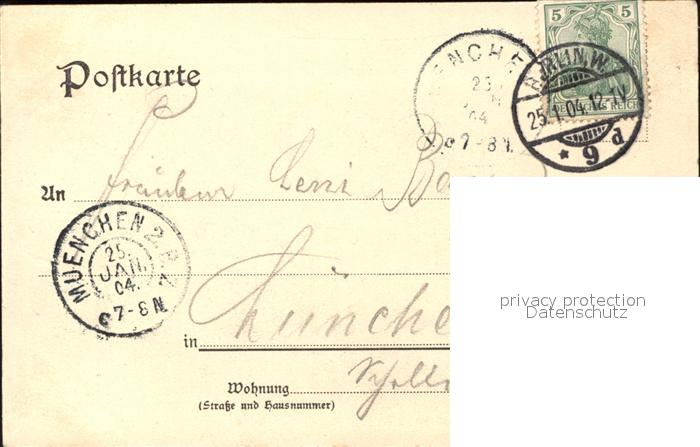 5 5
DEUTSCHES REICH
BERLIN.W.
25.1.04.12-1V.
* 9 d
Postkarte
ENCHE
25
04
7-8 N.
An Fräulein
MUENCHEN 2.B.Z.
25.
JAN.
04.
7-8 N.
in Münche
Wohnung
(Straße und Hausnummer)
privacy protection
Datenschutz